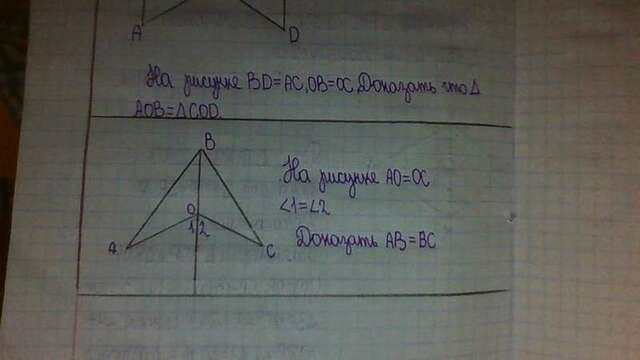 A D
На рисунке BD=AC, OB=OC Доказать что Δ
AOB=ΔCOD.
B
На рисунке AO=OC
O
∠1=∠2
1 2
Доказать AB=BC
A C